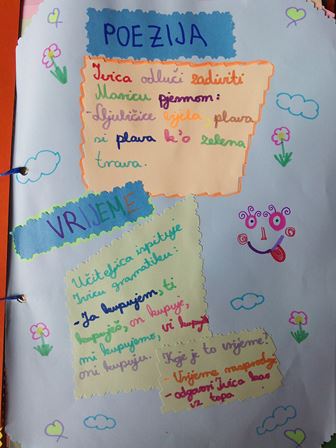 POEZIJA
Ivica odluči zadiviti
Maricu pjesmom:
-Ljubičice bijela, plava
si plava k'o zelena
trava.
VRIJEME
Učiteljica ispituje
Ivicu gramatiku:
-Ja kupujem, ti
kupuješ, on kupuje,
mi kupujemo, vi kupujete
oni kupuju.
Koje je to vrijeme?
- Vrijeme rasprodaje
- odgovori Ivica kao
iz topa